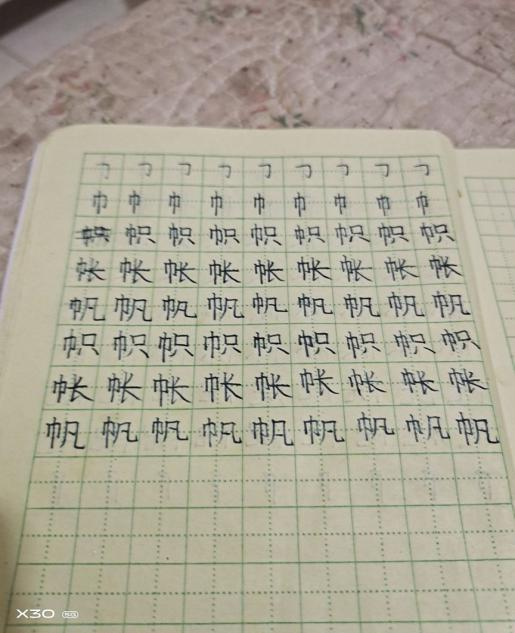 ㇆ ㇆ ㇆ ㇆ ㇆ ㇆ ㇆ ㇆ ㇆
巾 巾 巾 巾 巾 巾 巾 巾 巾
帜 帜 帜 帜 帜 帜 帜 帜
帐 帐 帐 帐 帐 帐 帐 帐 帐
帆 帆 帆 帆 帆 帆 帆 帆 帆
帜 帜 帜 帜 帜 帜 帜 帜 帜
帐 帐 帐 帐 帐 帐 帐 帐 帐
帆 帆 帆 帆 帆 帆 帆 帆 帆
X30 5G